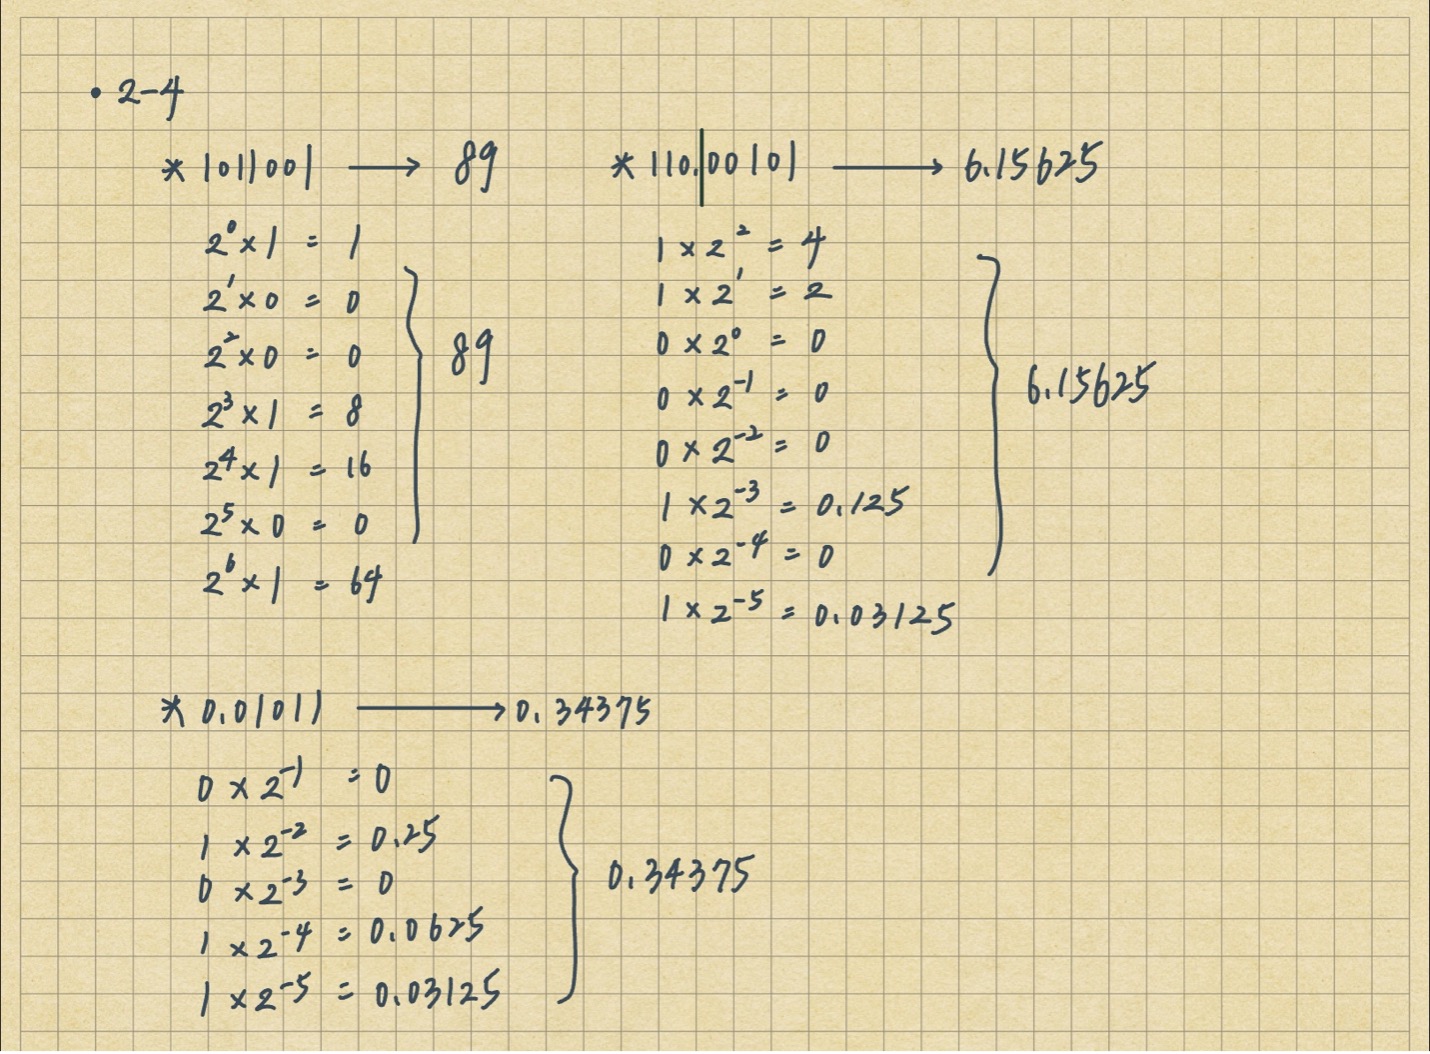 • 2-4
* 1011001 → 89
2⁰ × 1 = 1
2¹ × 0 = 0
2² × 0 = 0
2³ × 1 = 8
2⁴ × 1 = 16
2⁵ × 0 = 0
2⁶ × 1 = 64
89
* 110.00101 → 6.15625
1 × 2² = 4
1 × 2¹ = 2
0 × 2⁰ = 0
0 × 2⁻¹ = 0
0 × 2⁻² = 0
1 × 2⁻³ = 0.125
0 × 2⁻⁴ = 0
1 × 2⁻⁵ = 0.03125
6.15625
* 0.01011 → 0.34375
0 × 2⁻¹ = 0
1 × 2⁻² = 0.25
0 × 2⁻³ = 0
1 × 2⁻⁴ = 0.0625
1 × 2⁻⁵ = 0.03125
0.34375